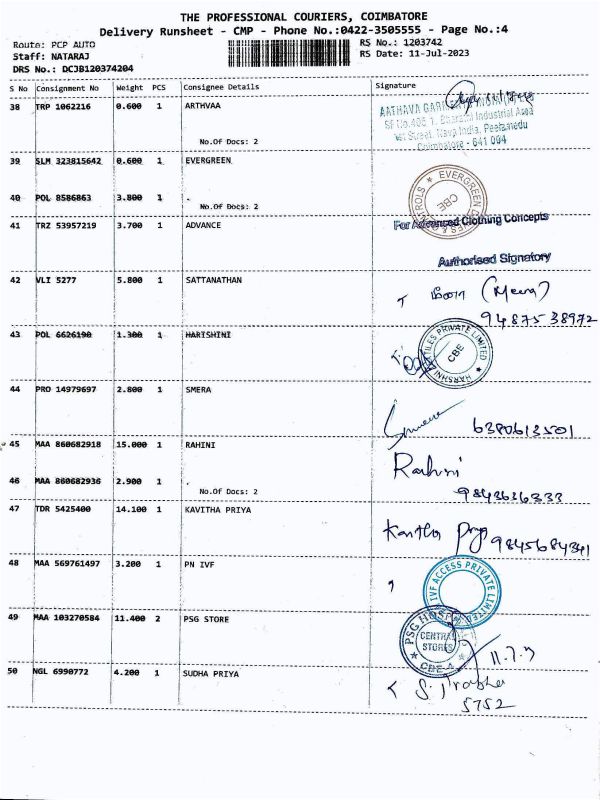 THE PROFESSIONAL COURIERS, COIMBATORE
Delivery Runsheet - CMP - Phone No.:0422-3505555 - Page No.:4
Route: PCP AUTO RS No.: 1203742
Staff: NATARAJ RS Date: 11-Jul-2023
DRS No.: DCJB120374204
S No Consignment No Weight PCS Consignee Details Signature
38 TRP 1062216 0.600 1 ARTHVAA
No.Of Docs: 2
AATHAVA GARMENT INDIA
SF No.405 1, Bharathi Industrial Area
1st Street, Nava India, Peelamedu
Coimbatore - 641 004
39 SLM 323815642 0.600 1 EVERGREEN
EVERGREEN
CBE
40 POL 8586863 3.800 1 .
No.Of Docs: 2
41 TRZ 53957219 3.700 1 ADVANCE
For Advanced Clothing Concepts
Authorised Signatory
42 VLI 5277 5.800 1 SATTANATHAN
மீனா (Meena)
94875 38972
43 POL 6626190 1.300 1 HARISHINI
HARSHNI TEXTILES PRIVATE LIMITED
CBE
44 PRO 14979697 2.800 1 SMERA
6380613501
45 MAA 860682918 15.000 1 RAHINI
Rahini
46 MAA 860682936 2.900 1 .
No.Of Docs: 2
9843636333
47 TDR 5425400 14.100 1 KAVITHA PRIYA
Kavitha Priya 9845684341
48 MAA 569761497 3.200 1 PN IVF
IVF ACCESS PRIVATE LIMITED
49 MAA 103270584 11.400 2 PSG STORE
PSG HOSPITALS
CENTRAL
STORES
CBE-4
11.7.
50 NGL 6990772 4.200 1 SUDHA PRIYA
S. Prabha
5752